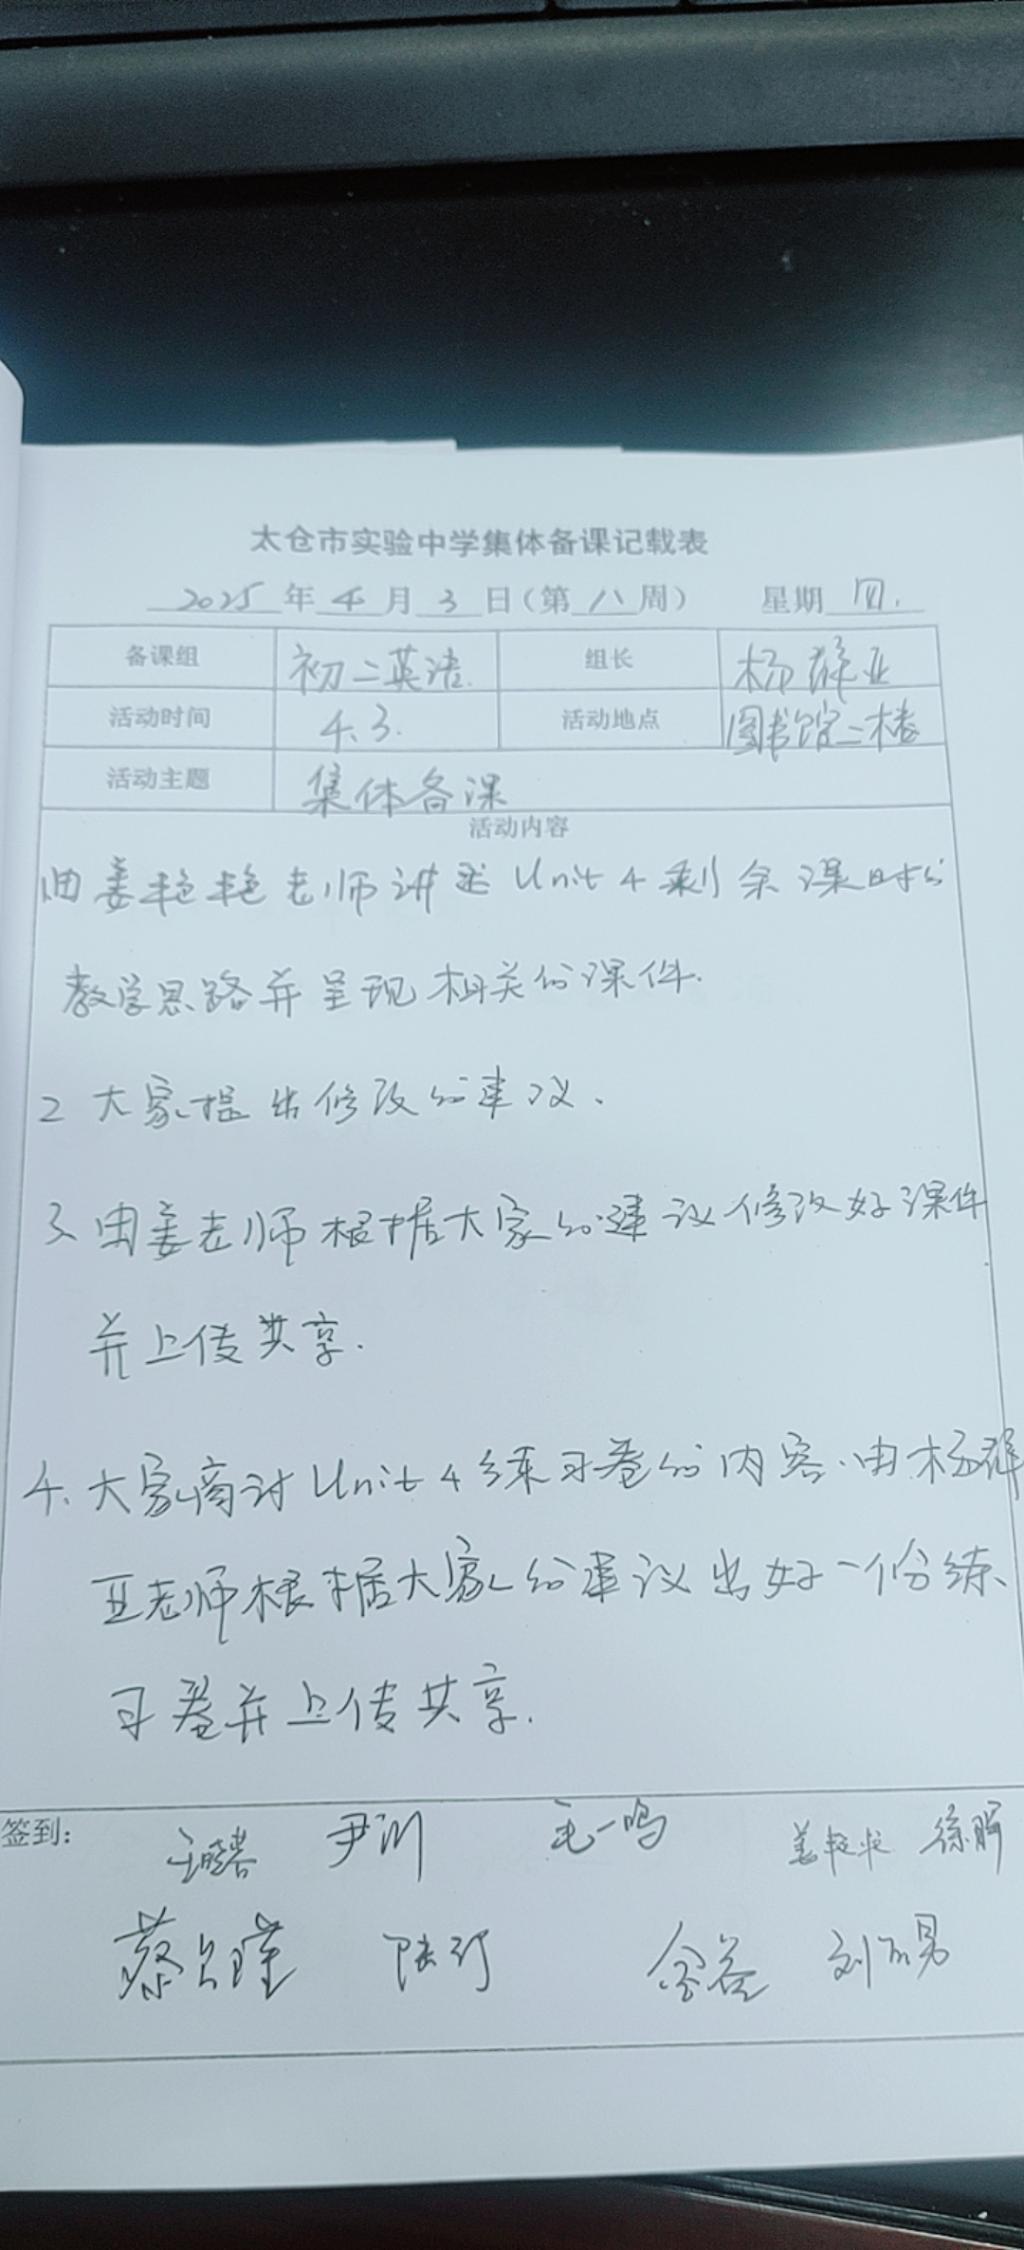 太仓市实验中学集体备课记载表
2025年4月3日(第八周) 星期四.
备课组 初二英语. 组长 杨群亚
活动时间 4.3. 活动地点 图书馆二楼
活动主题 集体备课
活动内容
由姜艳艳老师讲述Unit 4剩余课时的
教学思路并呈现相关的课件.
2 大家提出修改的建议、
3. 由姜老师根据大家的建议修改好课件
并上传共享.
4. 大家商讨Unit 4练习卷的内容.由杨群
亚老师根据大家的建议出好一份练
习卷并上传共享.
签到: 尹训 毛一鸣 姜艳艳 徐
蔡 瑾 陆订 金益 刘 男